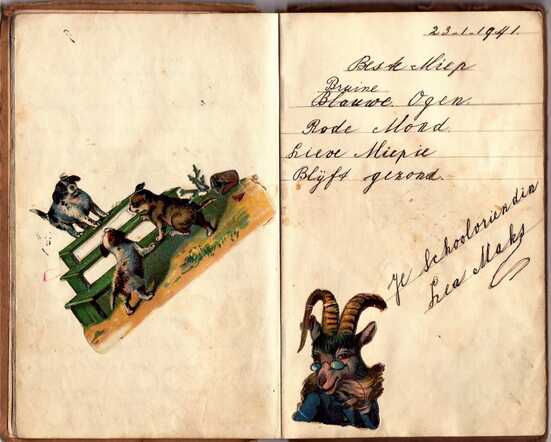 23-1-1941.
Beste Miep
Bruine
Blauwe. Ogen.
Rode Mond.
Lieve Miepie
Blÿft gezond.
Je Schoolvriendin
Lea Maks